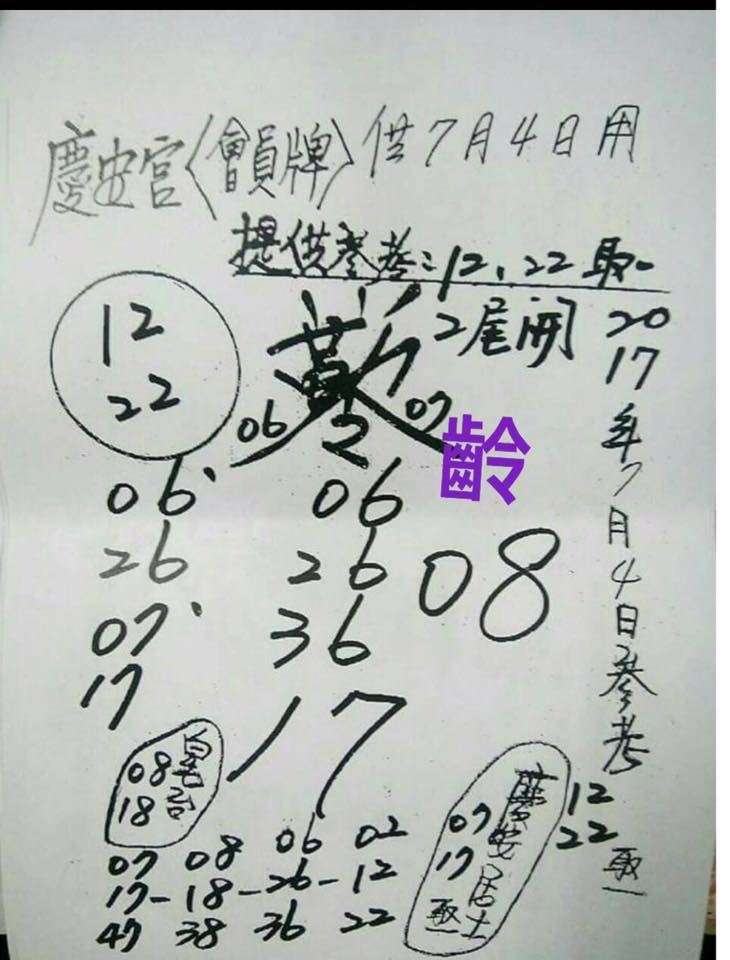 慶安宮〈會員牌〉供7月4日用
提供參考:12、22取一
2尾開
12
22
06 07
齡
06
26
07
17
06
26
36
08
17
2017年7月4日參考
12
22
取一
08
18
07 08 06 02
17-18-26-12
47 38 36 22
慶安居士
07
17
取一